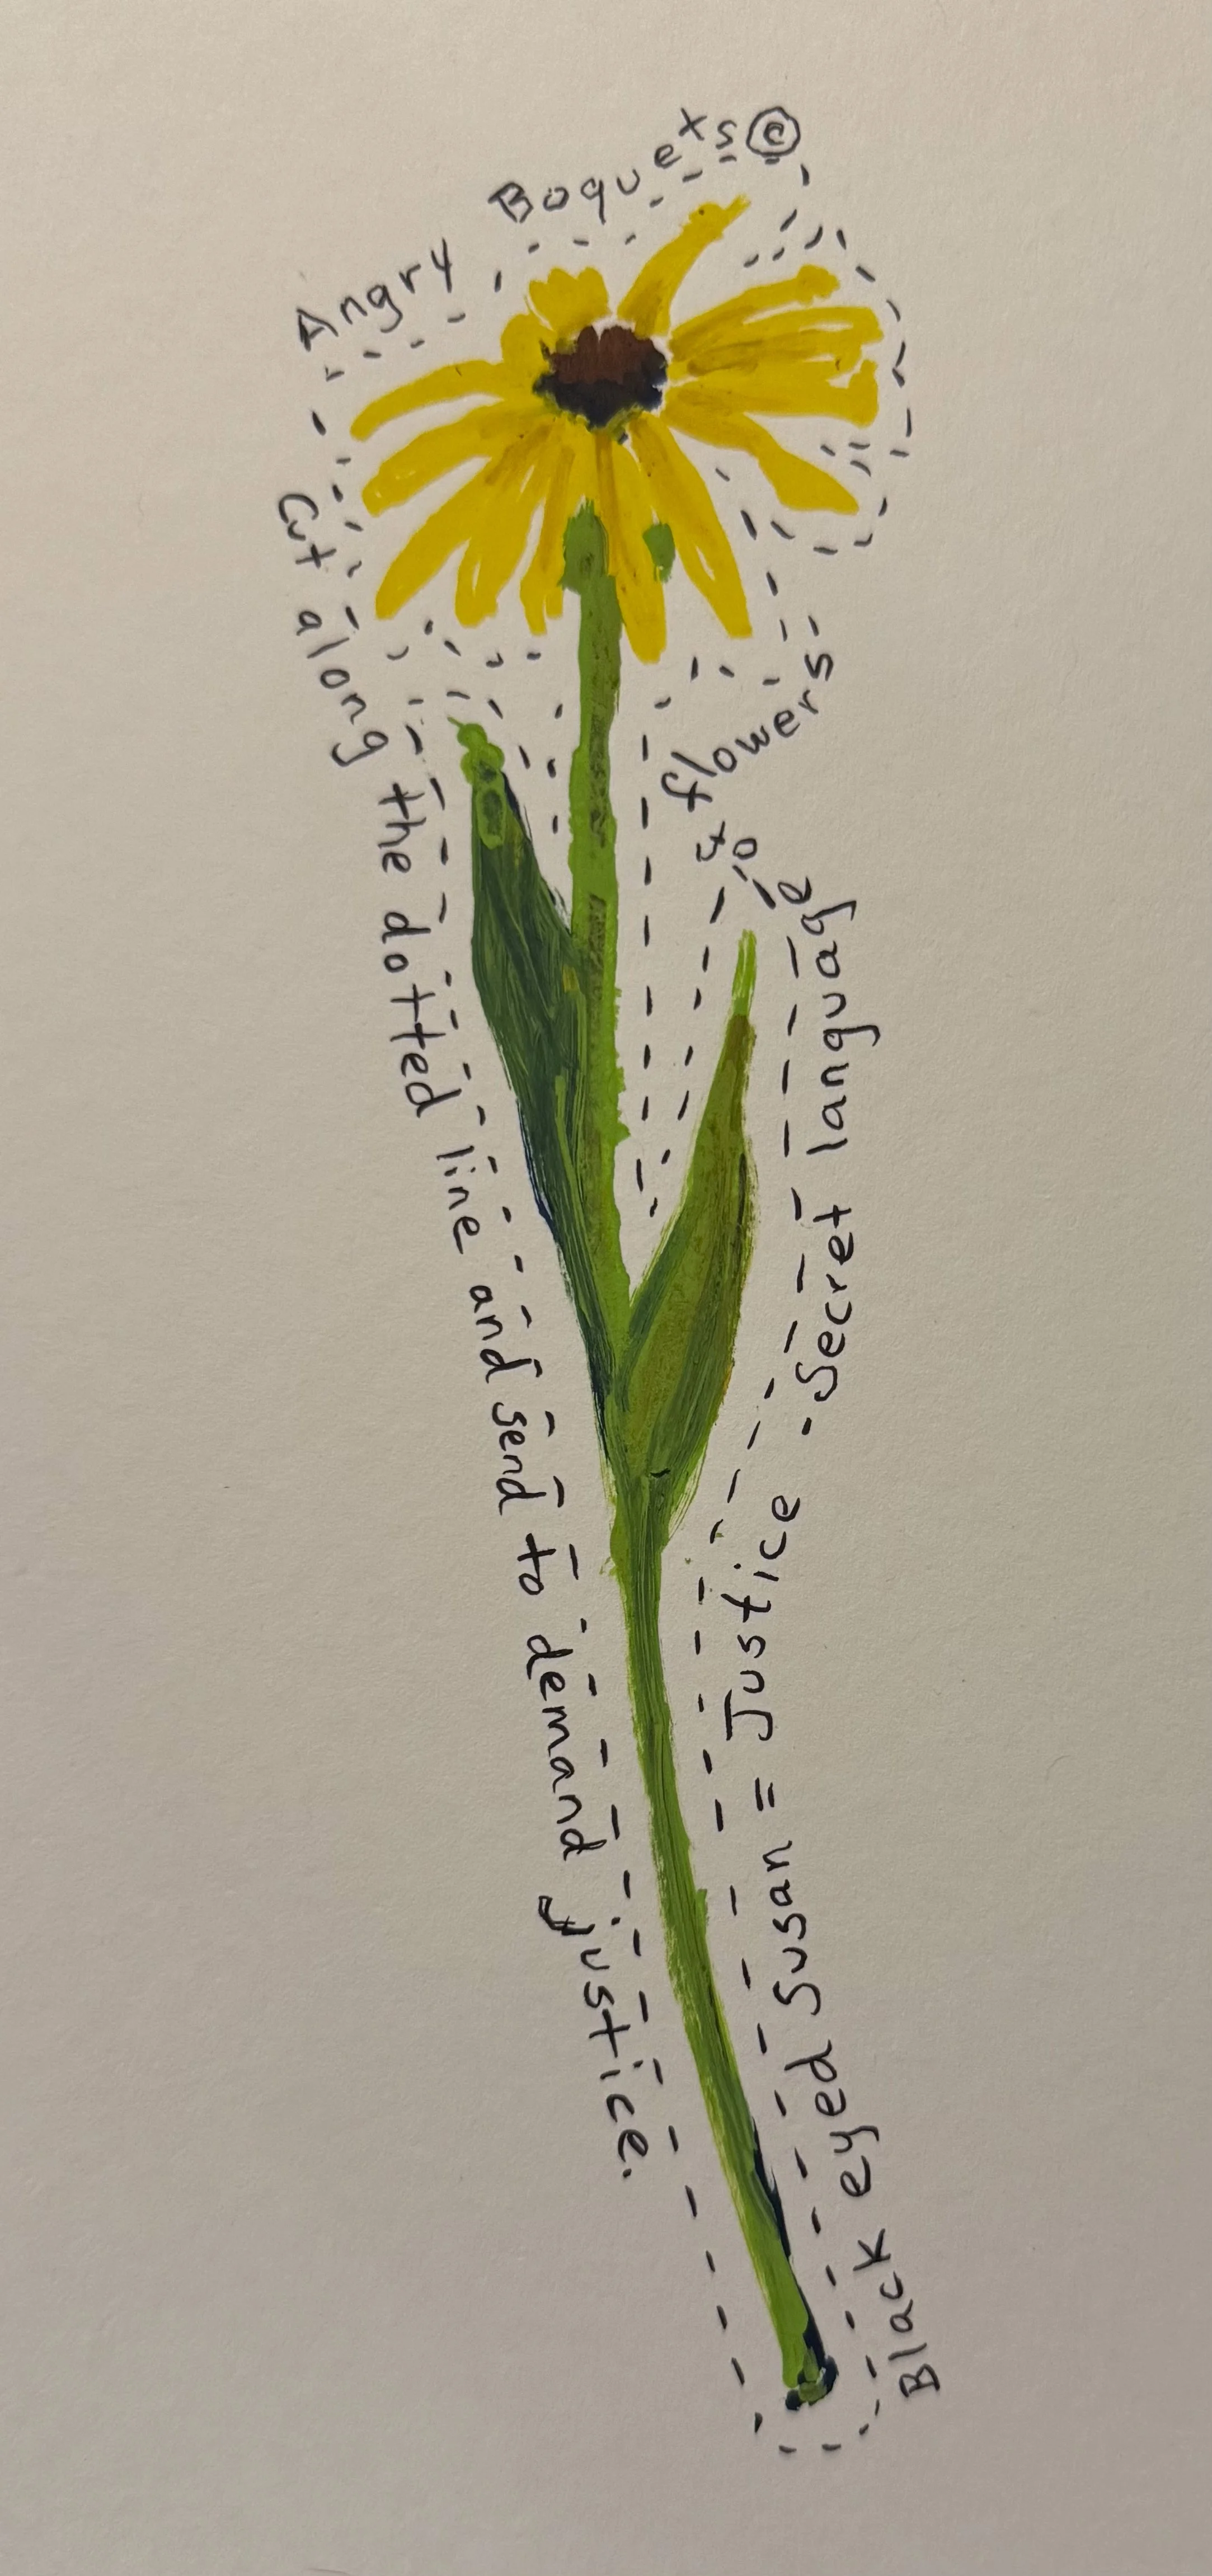 Angry Boquets ©
Cut along the dotted line and send to demand justice.
Black eyed Susan = Justice - Secret language of flowers